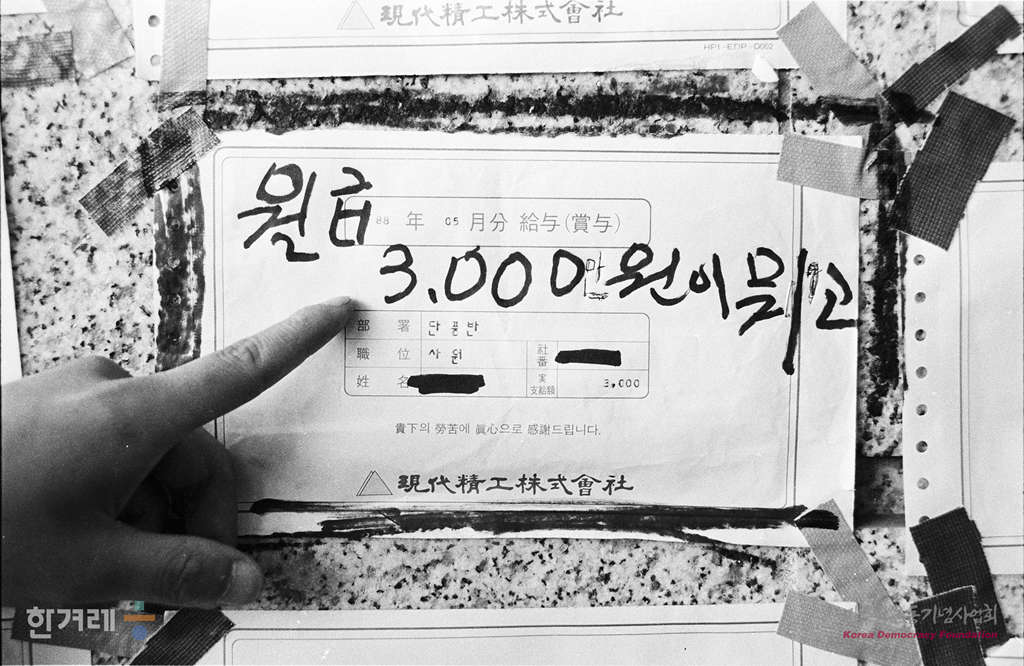 現代精工株式會社
HPI-EDP-0002
월급
88 年 05 月分 給与(賞与)
3.000만원이 뭐고
部 署 단조반
職 位 사원 社番
姓 名 実支給額 3,000
貴下의 勞苦에 眞心으로 感謝드립니다.
現代精工株式會社
한겨레
기념사업회
Korea Democracy Foundation